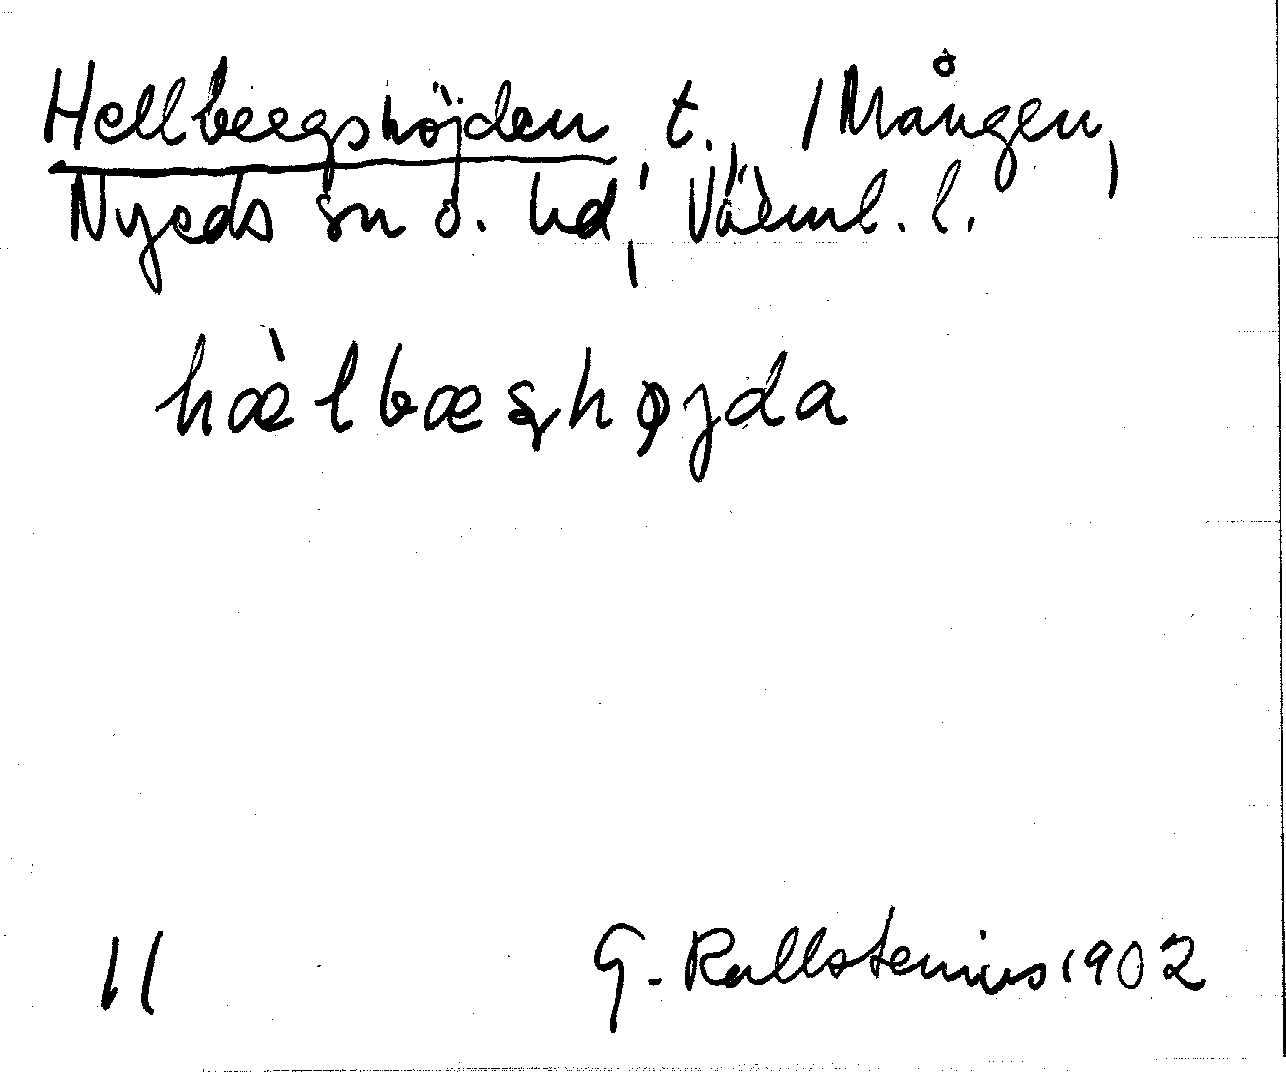 Hellbergshöjden, t. / Mången,
Nyeds sn ö. hd, Värml. l.
hæ̀lbæʂhøjda
11 G. Kallstenius 1902